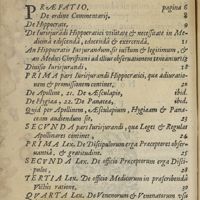 PRÆFATIO. pagina 6
De ordine Commentarij. 8
De Hippocrate. 9
De Iurisiurãdi Hippocratici vtilitate & necessitate in Medicina ediscendâ, edocendâ & exercendâ.
An Hippocratis Iusiurandum sit iustum & legitimum, &
an Medici Christiani ad illius obseruationem teneantur
Diuisio Iurisiurandi. 18
PRIMA pars Iurisiurandi Hippocratici, quæ adiurationem & promissionem continet.
De Apolline, 21. De Æsculapio, ibid.
De Hygea, 22. De Panacea, ibid.
Quid per Apollinem, Æsculapium, Hygiæam & Panaceam audiendum sit. 23
SECVNDA pars Iurisiurandi, quæ Leges & Regulas
Apollineas continet. 24
PRIMA Lex. De Discipulorum erga Præceptores obseruantiâ, & gratitudine. 25
SECVNDA Lex. De officio Præceptorum erga Discipulos. 28
TERTIA Lex. De officio Medicorum in præscribendâ
Victûs ratione. 30
QVARTA Lex. De Venenorum & Venenatorum vsu